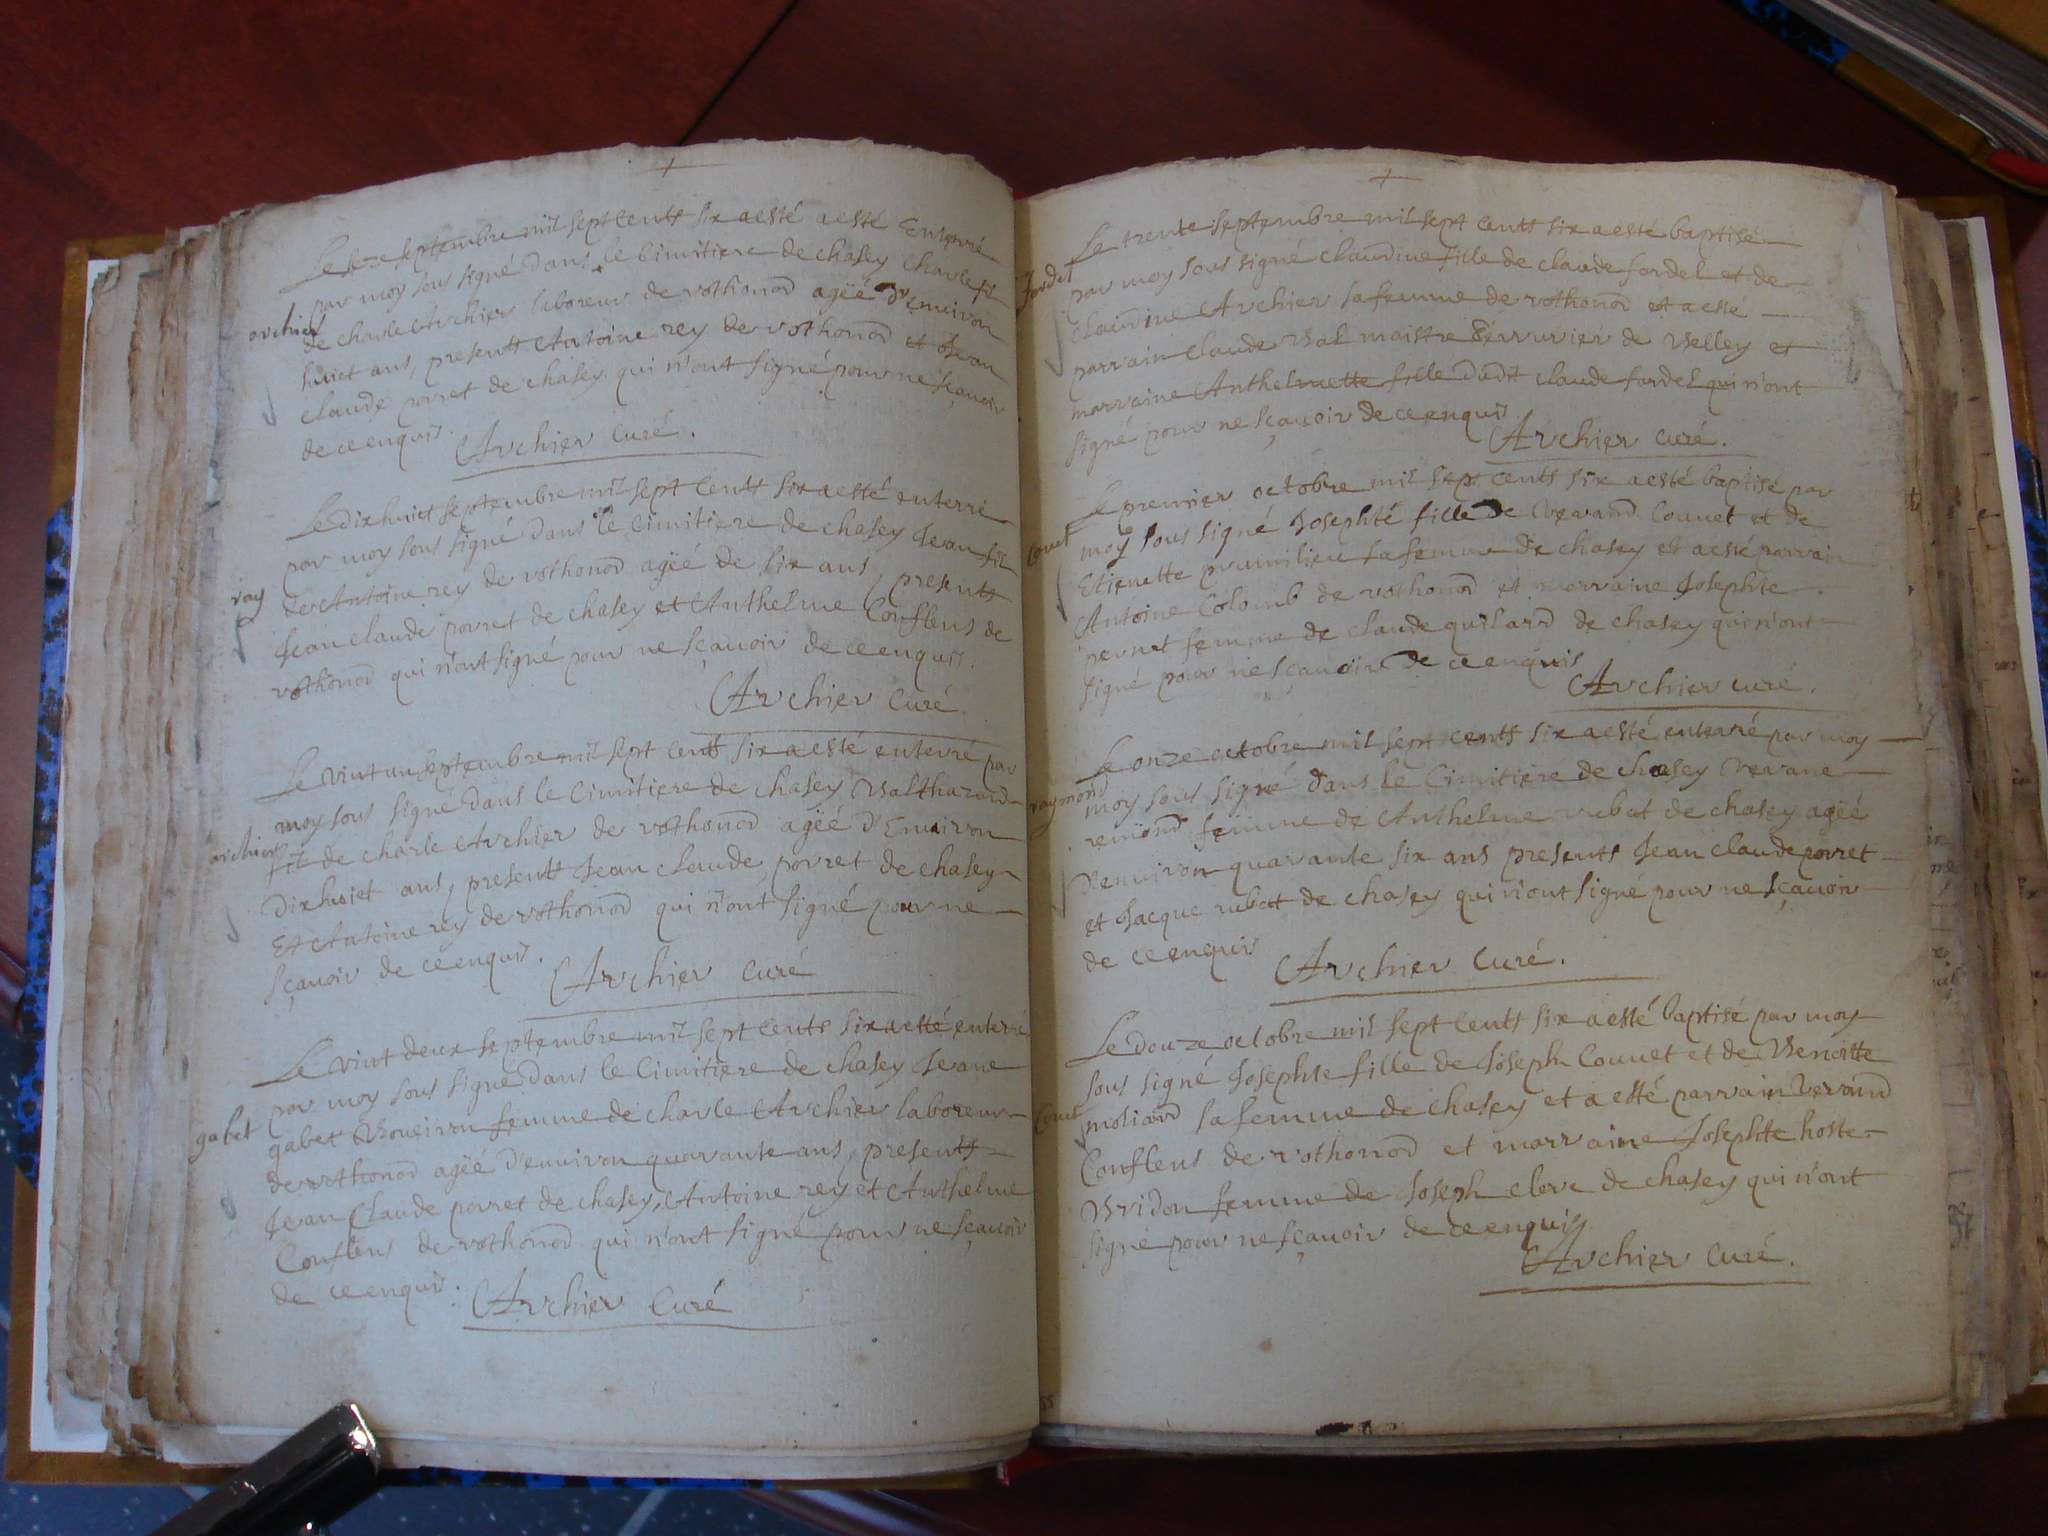 Le seze septembre mil sept cents six a esté a esté Enterré
par moy sous signé dans le Cimitiere de chasey charle fil
archier
de charle Archier laboreur de vothonod agëé d'enuiron
huict ans, presents Antoine rey de vothonod et Jean
claude porret de chasey qui n'ont signé pour ne sçauoir
de ce enquis.
Archier Curé.
Le dixhuict septembre mil sept Cents six a esté enterré
par moy sous signé dans le Cimitiere de chasey Jean fil
de Antoine rey de vothonod agëé de six ans, presents
ray
Jean claude porret de chasey et Anthelme Conflens de
vothonod qui n'ont signé pour ne sçauoir de ce enquis.
Archier Curé.
Le vint un septembre mil sept cents six a esté enterré par
moy sous signé dans le Cimitiere de chasey Balthazard
archier
fil de charle Archier de vothonod agëé d'Enuiron
dixhuict ans, presents Jean claude porret de chasey
Et Antoine rey de vothonod qui n'ont signé pour ne
sçauoir de ce enquis.
Archier Curé
Le vint deux septembre mil sept Cents six a esté enterré
par moy sous signé dans le Cimitiere de chasey Jeane
gabet
gabet femme de charle Archier laboreur
de vothonod agëé d'enuiron quarante ans, presents
Jean Claude porret de chasey, Antoine rey et Anthelme
Conflens de vothonod qui n'ont signé pour ne sçauoir
de ce enquis.
Archier Curé
Le trente septembre mil sept Cents six a esté baptisé
fordel
par moy sous signé claudine fille de claude fordel et de
claudine Archier sa femme de vothonod et a esté
parrain claude Bal maistre serrurier de Belley et
marraine Anthelmette fille dudit claude fordel qui n'ont
signé pour ne sçauoir de ce enquis.
Archier Curé.
Le premier octobre mil sep cents six a esté baptisé par
couet
moy sous signé Josephte fille de Couuet et de
Etienette prumilieu sa femme de chasey et a esté parrain
Antoine Colomb de vothonod et marraine Josephte
pernet femme de claude quilard de chasey qui n'ont
signé pour ne sçauoir de ce enquis
Archier curé.
Le onze octobre mil sept cents six a esté enterré par moy
raymond
moy sous signé dans le Cimitiere de chasey
remond femme de Anthelme rubat de chasey agëé
d'enuiron quarante six ans presents Jean claude porret
et Jacque rubat de chasey qui n'ont signé pour ne sçauoir
de ce enquis
Archier Curé.
Le douze octobre mil sept Cents six a esté baptisé par moy
sous signé Josephte fille de Joseph Couuet et de Benoitte
couet
moliard sa femme de chasey et a esté parrain
Conflens de vothonod et marraine Josephte hoste
Bridon femme de Joseph clerc de chasey qui n'ont
signé pour ne sçauoir de ce enquis
Archier Curé.